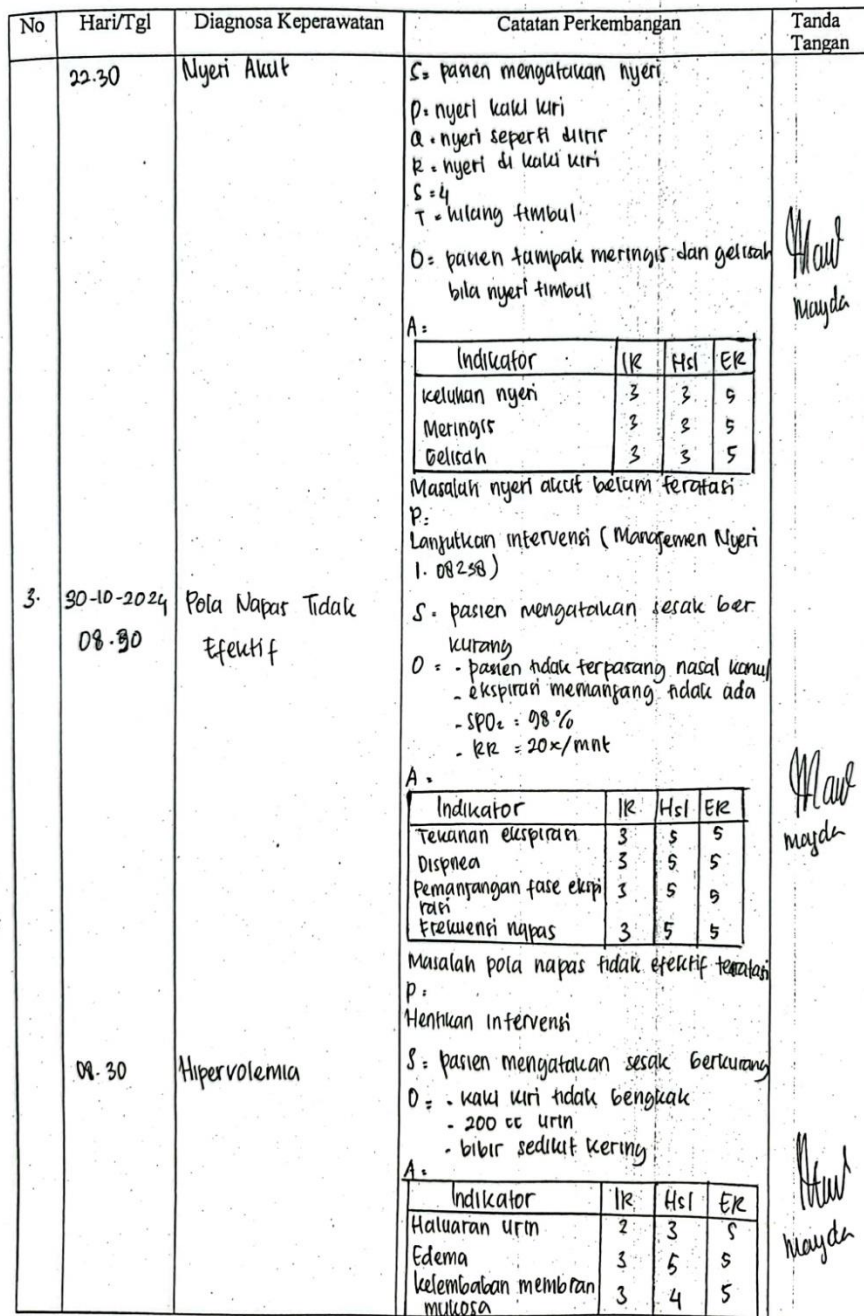 No Hari/Tgl Diagnosa Keperawatan Catatan Perkembangan Tanda Tangan
22.30 Nyeri Akut S= pasien mengatakan nyeri
P= nyeri kaki kiri
Q= nyeri seperti diiris
R= nyeri di kaki kiri
S=4
T= hilang timbul
O= pasien tampak meringis dan gelisah
bila nyeri timbul
Mayda
A=
Indikator IR Hsl ER
Keluhan nyeri 3 3 5
Meringis 3 3 5
Gelisah 3 3 5
Masalah nyeri akut belum teratasi
P:
Lanjutkan intervensi (Manajemen Nyeri
1. 08238)
3. 30-10-2024 Pola Napas Tidak S= pasien mengatakan sesak ber
08.30 Efektif kurang
O= - pasien tidak terpasang nasal kanul
- ekspirasi memanjang tidak ada
- SPO2 = 98%
- RR = 20x/mnt
A=
Indikator IR Hsl ER
Tekanan ekspirasi 3 5 5
mayda
Dispnea 3 5 5
Pemanjangan fase ekspi 3 5 5
rasi
Frekuensi napas 3 5 5
Masalah pola napas tidak efektif teratasi
P:
Hentikan intervensi
08.30 Hipervolemia S= pasien mengatakan sesak berkurang
O= - kaki kiri tidak bengkak
- 200 cc urin
- bibir sedikit kering
A=
Indikator IR Hsl ER
Haluaran urin 2 3 5
mayda
Edema 3 5 5
Kelembaban membran 3 4 5
mukosa